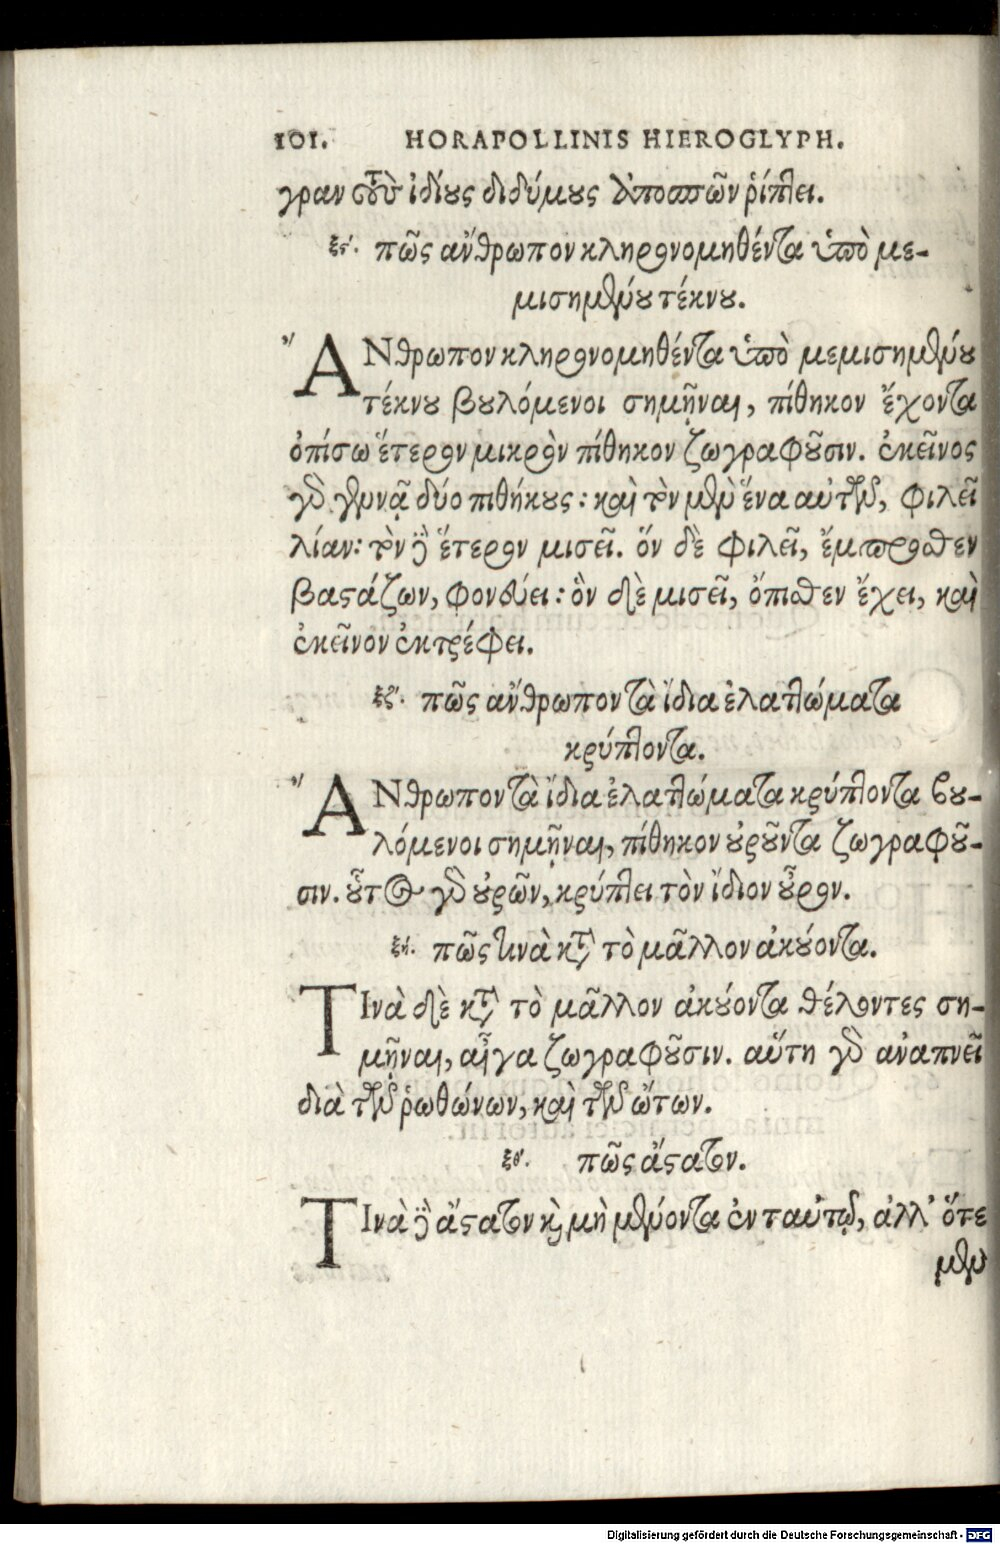 101. HORAPOLLINIS HIEROGLYPH.
γραν τοὺς ἰδίους διδύμους ἀποσπῶν ῥίπτει.
ξς΄. πῶς ἄνθρωπον κληρονομηθέντα ὑπὸ με-
μισημένου τέκνου.
ἌΝθρωπον κληρονομηθέντα ὑπὸ μεμισημένου
τέκνου βουλόμενοι σημῆναι, πίθηκον ἔχοντα
ὀπίσω ἕτερον μικρὸν πίθηκον ζωγραφοῦσιν. ἐκεῖνος
γὰρ γεννᾷ δύο πιθήκους: καὶ τὸν μὲν ἕνα αὐτῶν, φιλεῖ
λίαν: τὸν δὲ ἕτερον μισεῖ. ὅν δὲ φιλεῖ, ἔμπροσθεν
βαστάζων, φονεύει: ὃν δὲ μισεῖ, ὄπισθεν ἔχει, καὶ
ἐκεῖνον ἐκτρέφει.
ξζ΄. πῶς ἄνθρωπον τὰ ἴδια ἐλαττώματα
κρύπτοντα.
ἌΝθρωπον τὰ ἴδια ἐλαττώματα κρύπτοντα βου-
λόμενοι σημῆναι, πίθηκον οὐροῦντα ζωγραφοῦ-
σιν. οὗτος γὰρ οὐρῶν, κρύπτει τὸν ἴδιον οὖρον.
ξή. πῶς τινὰ κατὰ τὸ μᾶλλον ἀκούοντα.
ΤΙνὰ δὲ κατὰ τὸ μᾶλλον ἀκούοντα θέλοντες ση-
μῆναι, αἶγα ζωγραφοῦσιν. αὕτη γὰρ ἀναπνεῖ
διὰ τῶν ῥωθώνων, καὶ τῶν ὤτων.
ξθ΄. πῶς ἄστατον.
ΤΙνὰ δὲ ἄστατον καὶ μὴ μένοντα ἐν ταὐτῷ, ἀλλ’ ὅτε
μὲν
Digitalisierung gefördert durch die Deutsche Forschungsgemeinschaft - DFG